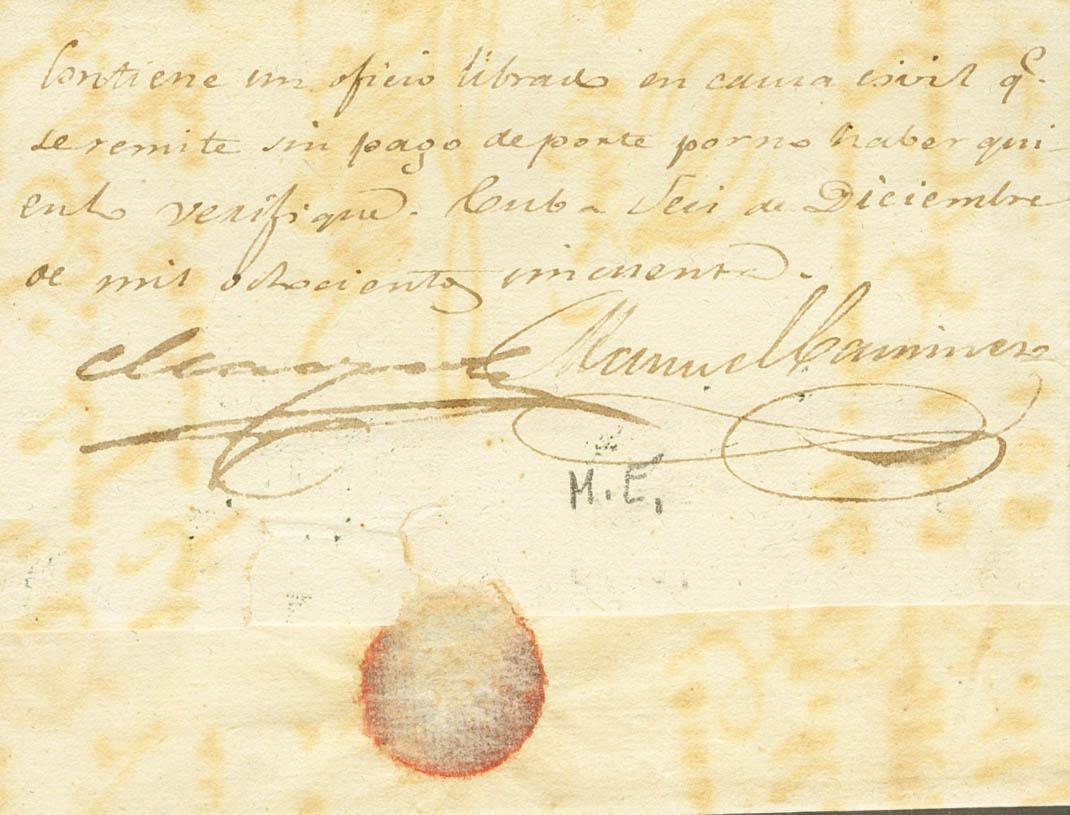 Contiene un oficio librado en causa civil q.e
se remite sin pago de porte por no haber qui-
en lo verifique. Cuba Seis de Diciembre
de mil ochocientos cincuenta.
Manuel Caminero
M.E.